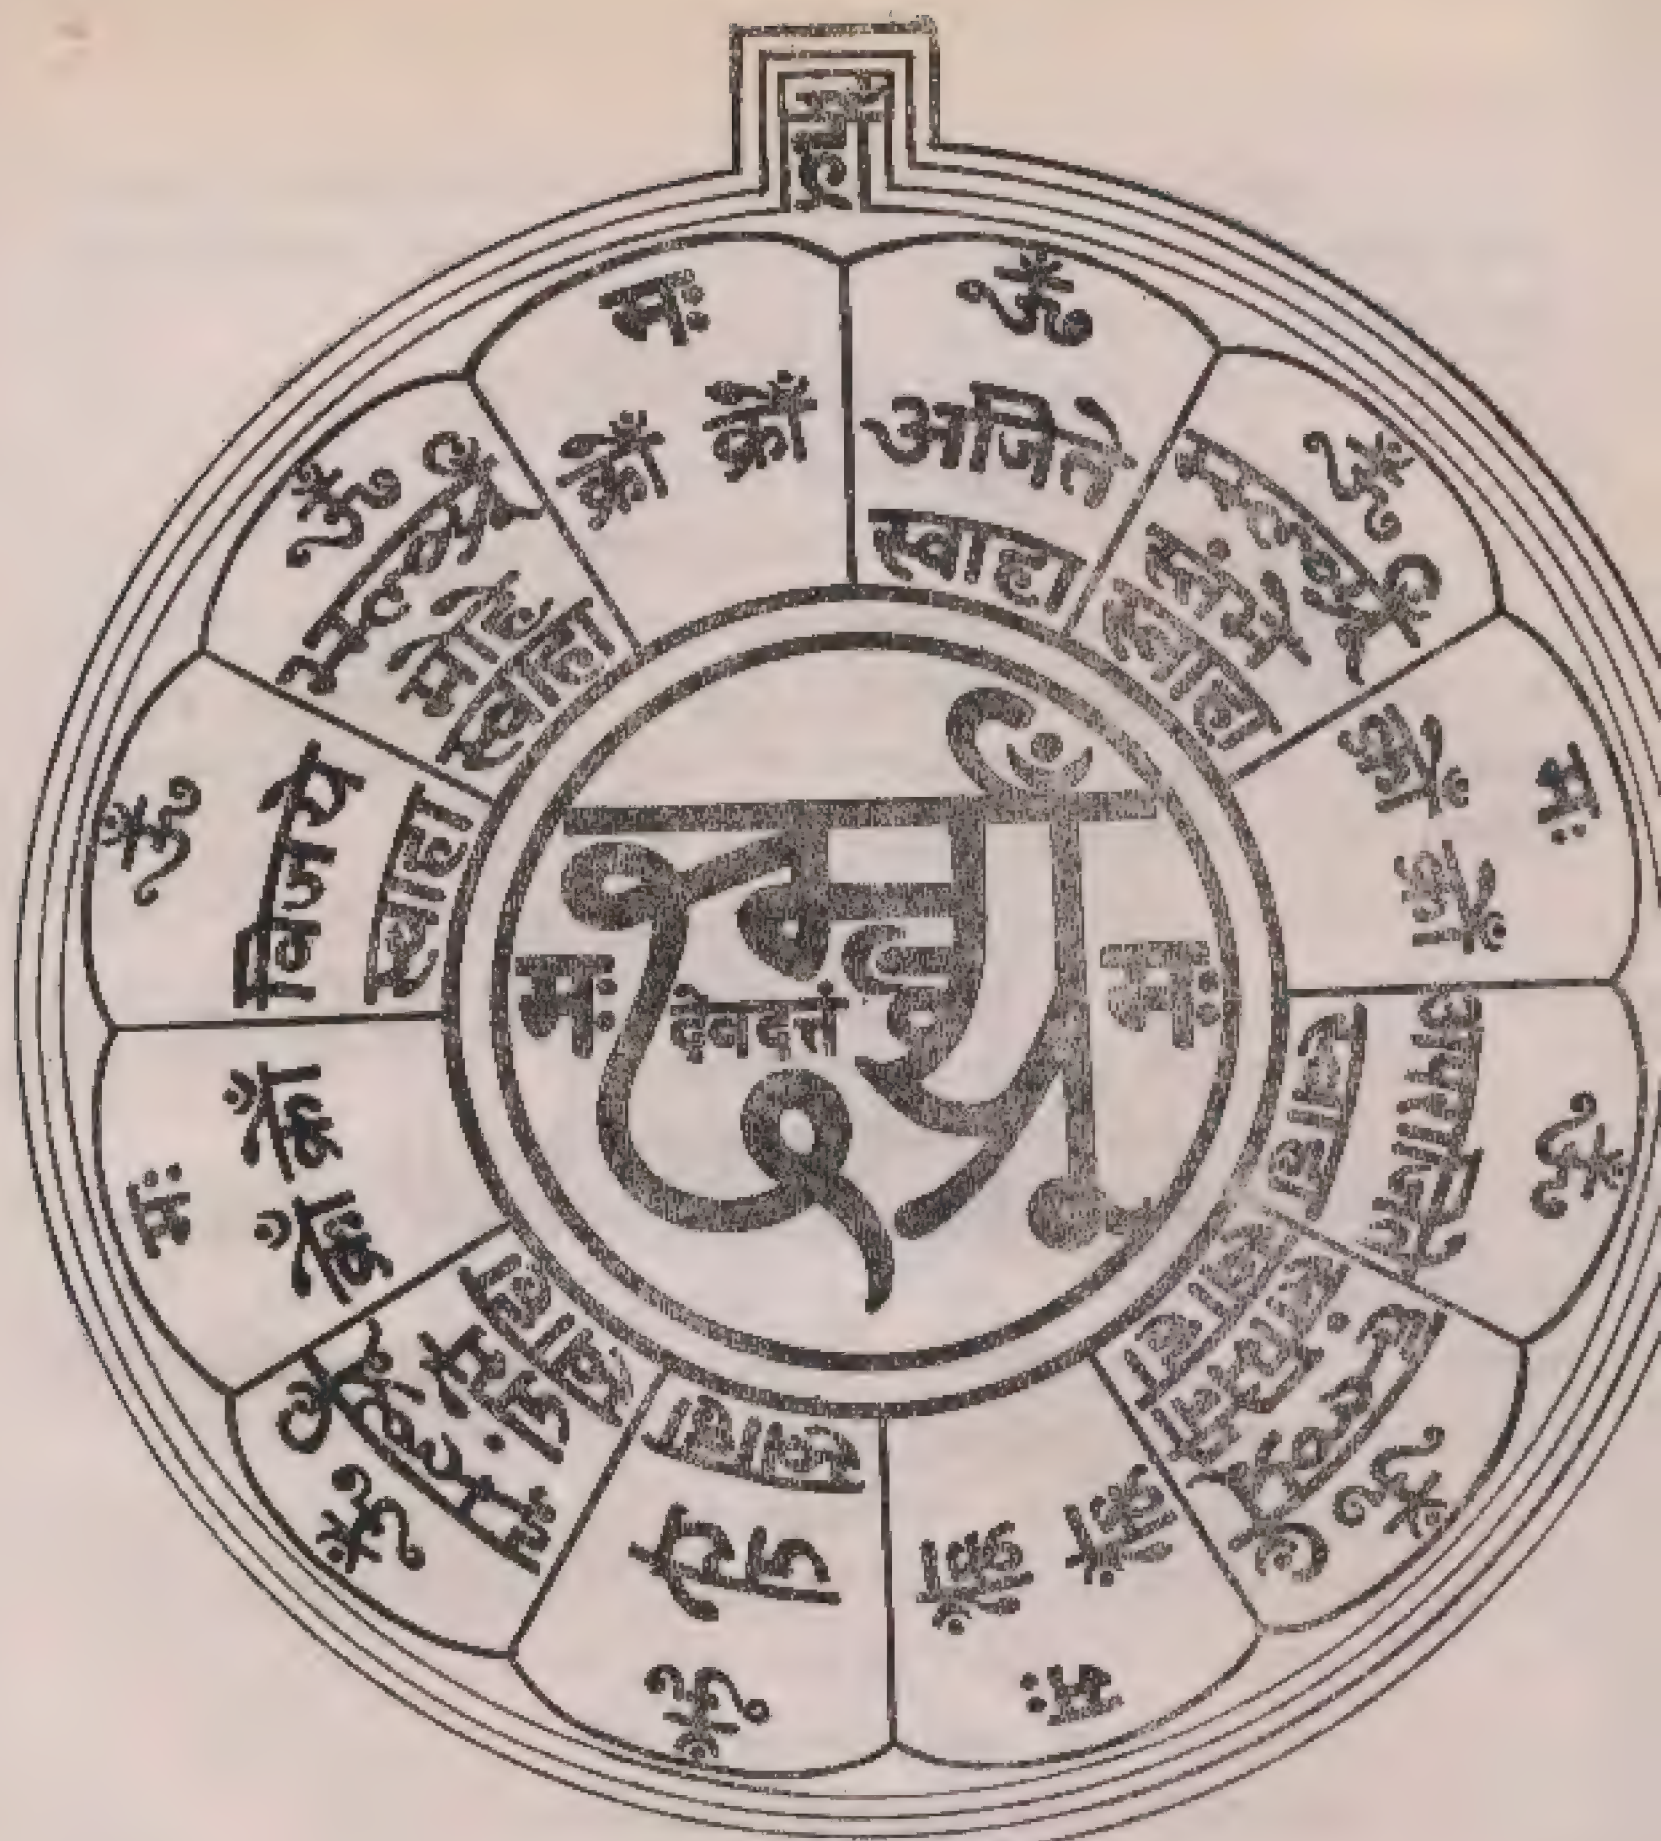 ॐ
अजिते
स्वाहा
ॐ
स्तंभे
स्वाहा
मः
क्रों क्रों
ॐ
अपराजिते
स्वाहा
ॐ
स्वाहा
मः
क्रों क्रों
ॐ
जये
स्वाहा
ॐ
जंभे
स्वाहा
मः
क्रों क्रों
ॐ
विजये
स्वाहा
ॐ
मोहे
स्वाहा
मः
क्रों क्रों
मः देवदत्तं मः